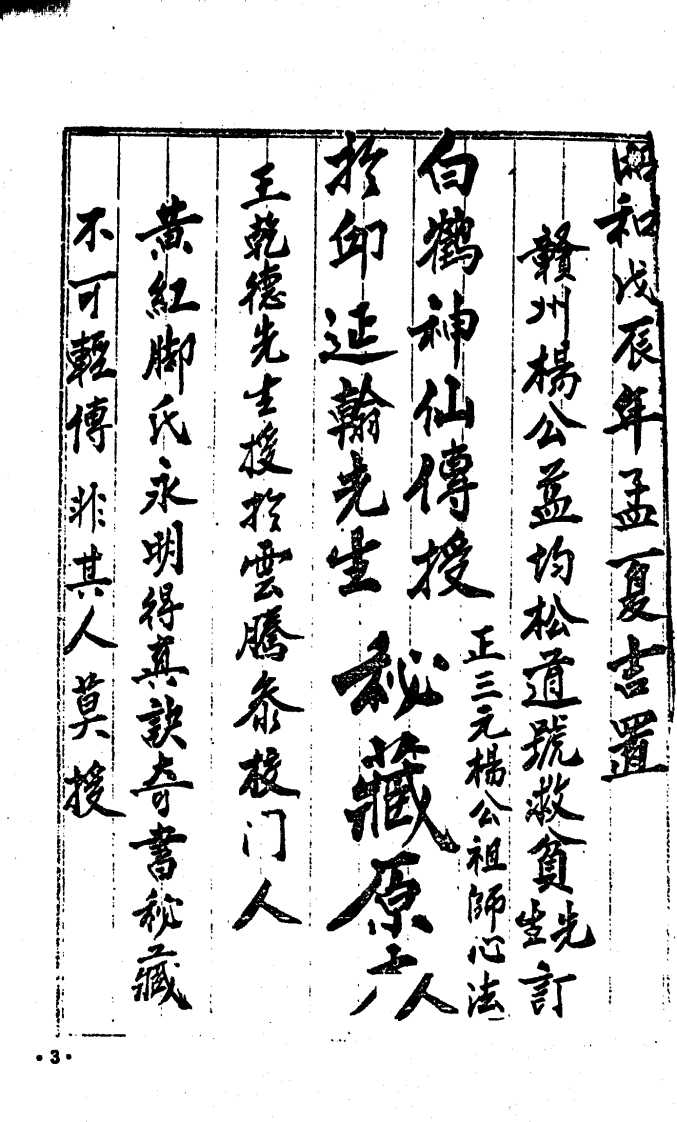 昭和戊辰年孟夏吉置
贛州楊公益均松道號救貧先生訂
白鶴神仙傳授
正三元楊公祖師心法
於邱延翰先生
秘藏原人
王乾德先生授於雲騰泰校门人
黃紅脚氏永明得真訣奇書秘藏
不可輕傳非其人莫授
•3•